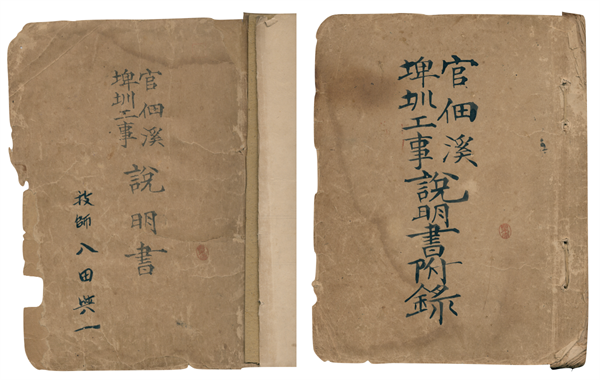 官佃溪
埤圳工事
說明書
技師 八田與一
官佃溪
埤圳工事
說明書附錄